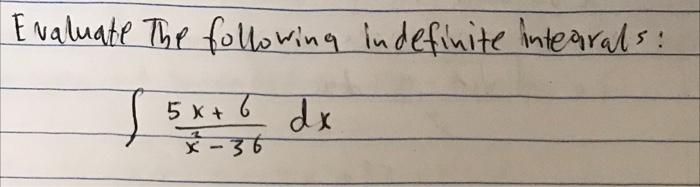 Evaluate The following indefinite Integrals:
∫ (5x + 6)/(x² - 36) dx